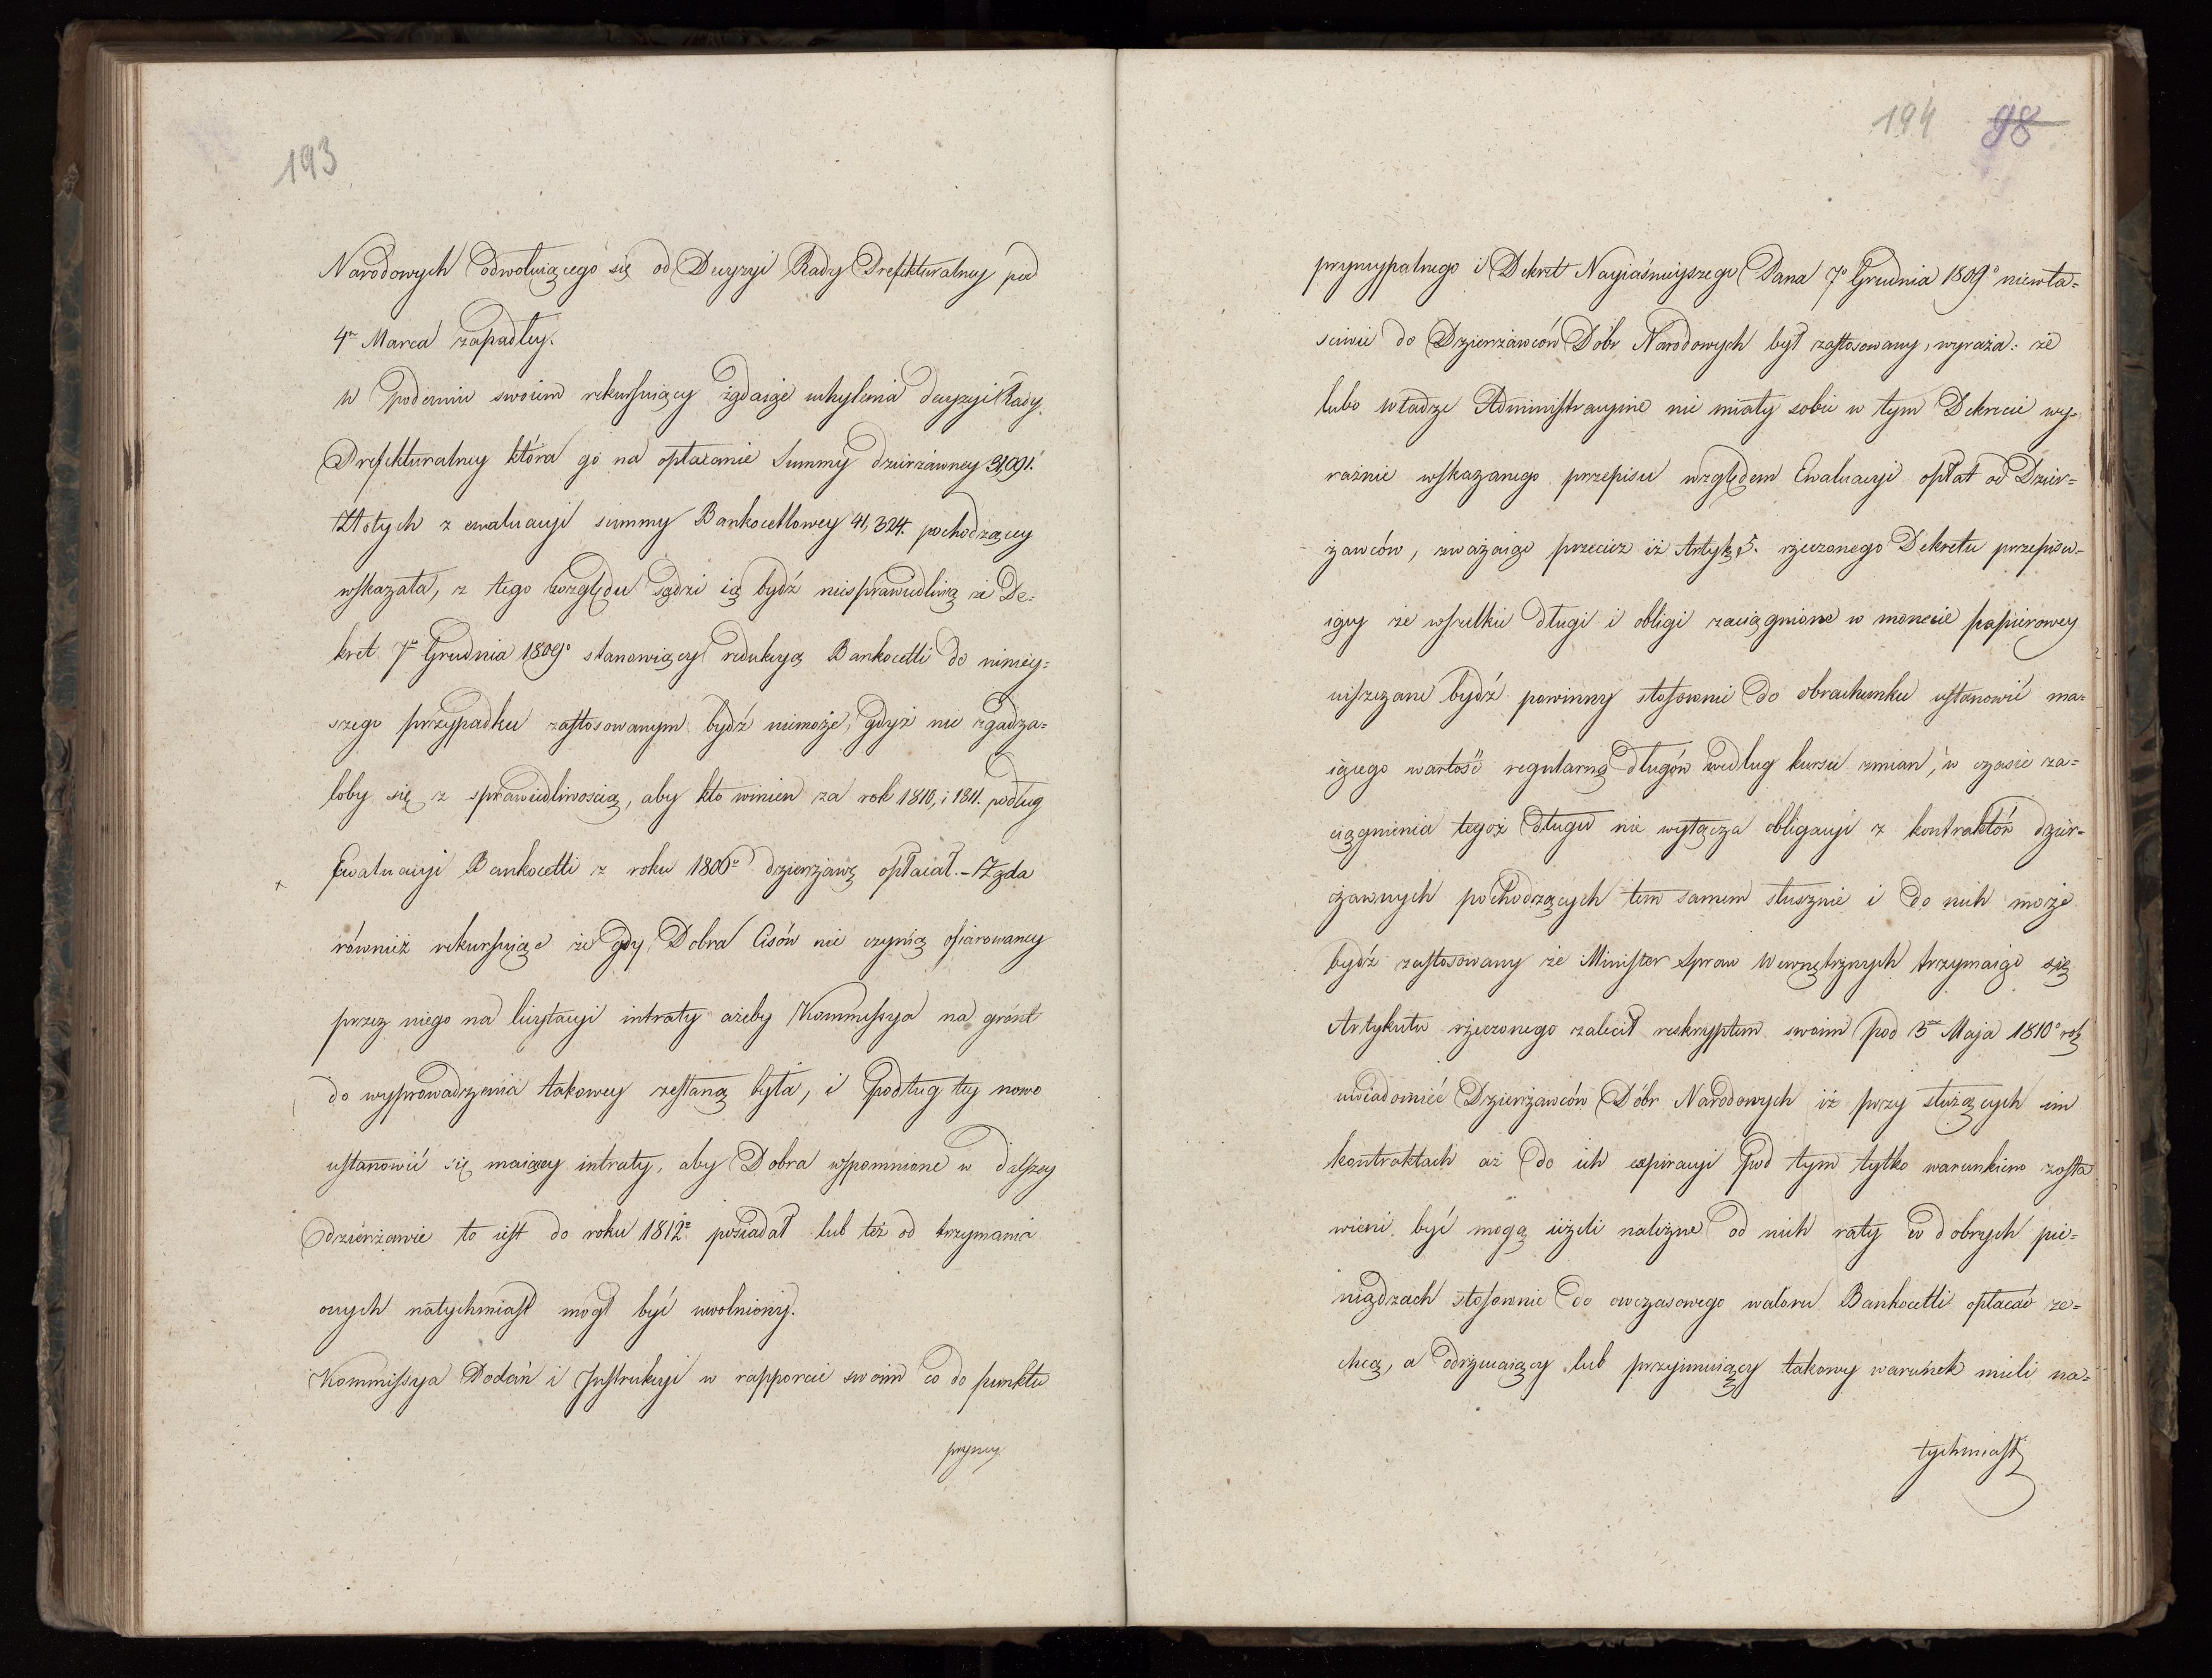 193
Narodowych odwołuiącego się od Decyzyi Rady Prefekturalney pod
4ᵐ Marca zapadłey.
W podaniu swoim rekursuiący żądaiąc uchylenia decyzyi Rady
Prefekturalney która go na opłacanie Summy dzierżawney 31,091.
Złotych z ewaluacyi summy Bankocetlowey 41,324. pochodzącey
wskazała, z tego względu sądzi ią bydź niesprawiedliwą że De=
kret 7º Grudnia 1809º stanowiący redukcyą Bankocetli do niniey=
szego przypadku zastosowanym bydź niemoże, gdyż nie zgadza=
łoby się z sprawiedliwością, aby kto winien za rok 1810, i 1811. podług
Ewaluacyi Bankocetli z roku 1806º dzierżawę opłacał. – Żąda
również rekursuiąc że gdy Dobra Cisów nie czynią ofiarowaney
przez niego na licytacyi intraty ażeby Kommissya na grónt
do wyprowadzenia takowey zesłaną była, i podług tey nowo
ustanowić się maiącey intraty, aby Dobra wspomnione w dalszey
dzierżawie to iest do roku 1812º posiadał lub też od trzymania
onych natychmiast mógł być uwolniony.
Kommissya Podań i Instrukcyi w rapporcie swoim co do punktu
pryncy
194 98
pryncypalnego i Dekret Nayiaśnieyszego Pana 7º Grudnia 1809º niewła=
sciwie do Dzierżawców Dóbr Narodowych był zastosowany, wyraża: że
lubo Władze Administracyine nie miały sobie w tym Dekrecie wy=
raźnie wskazanego przepisu względem Ewaluacyi opłat od Dzier=
żawców, zważaiąc przecież iż Artyk 5. rzeczonego Dekretu przepisu=
iący że wszelkie długi i obligi zaciągnione w monecie papierowey
uiszczane bydź powinny stosownie do obrachunku ustanowić ma=
iącego wartość regularną długów według kursu zmian, w czasie za=
ciągnienia tegoż długu nie wyłącza obligacyi z kontraktów dzier=
żawnych pochodzących tem samem słusznie i do nich może
bydź zastosowany że Minister Spraw Wewnętrznych trzymaiąc się
Artykułu rzeczonego zalecił reskryptem swoim pod 3ᵐ Maja 1810º rok
uwiadomić Dzierżawców Dóbr Narodowych iż przy służących im
kontraktach aż do ich expiracyi pod tym tylko warunkiem zosta
wieni być mogą ieżeli należne od nich raty w dobrych pie=
niądzach stosownie do owczasowego waloru Bankocetli opłacać ze=
chcą, a odrzucaiący lub przyimuiący takowy warunek mieli na=
tychmiast